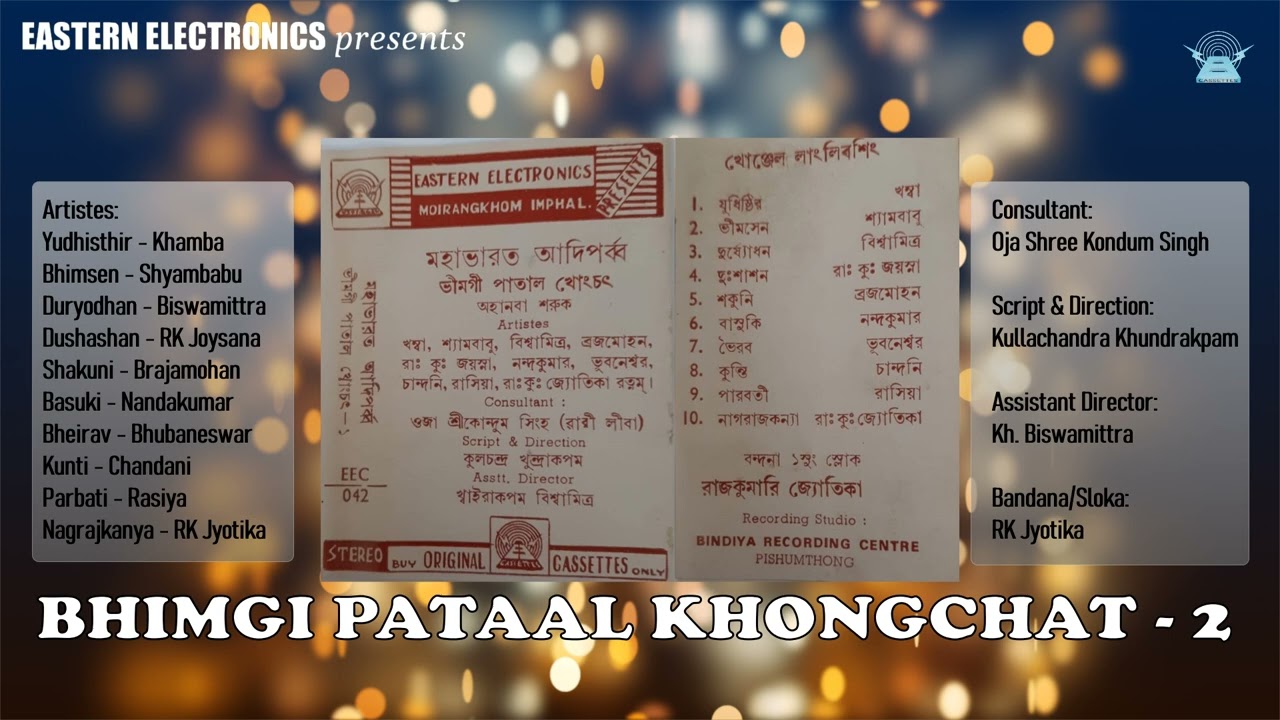 EASTERN ELECTRONICS presents
CASSETTES
Artistes:
Yudhisthir - Khamba
Bhimsen - Shyambabu
Duryodhan - Biswamittra
Dushashan - RK Joysana
Shakuni - Brajamohan
Basuki - Nandakumar
Bheirav - Bhubaneswar
Kunti - Chandani
Parbati - Rasiya
Nagrajkanya - RK Jyotika
EASTERN ELECTRONICS
MOIRANGKHOM IMPHAL.
PRESENTS
মহাভারত আদিপর্ব্ব
ভীমগী পাতাল খোংচৎ
অহানবা শরুক
Artistes
খম্বা, শ্যামবাবু, বিশ্বামিত্র, ব্রজমোহন,
রাঃ কুঃ জয়স্না, নন্দকুমার, ভূবনেশ্বর,
চান্দনি, রাসিয়া, রাঃকুঃ জ্যোতিকা রত্নম্।
Consultant :
ওজা শ্রীকোন্দুম সিংহ (ৱারী লীবা)
Script & Direction
কুলচন্দ্র খুন্দ্রাকপম
Asstt. Director
খ্বাইরাকপম বিশ্বামিত্র
মহাভারত আদিপর্ব্ব
ভীমগী পাতাল খোংচৎ-১
EEC
042
STEREO BUY ORIGINAL CASSETTES ONLY
খোঞ্জেল লাংলিবশিং
1. যুধিষ্ঠির খম্বা
2. ভীমসেন শ্যামবাবু
3. দুর্য্যোধন বিশ্বামিত্র
4. দুঃশাশন রাঃ কুঃ জয়স্না
5. শকুনি ব্রজমোহন
6. বাসুকি নন্দকুমার
7. ভৈরব ভূবনেশ্বর
8. কুন্তি চান্দনি
9. পারবতী রাসিয়া
10. নাগরাজকন্যা রাঃকুঃজ্যোতিকা
বন্দনা ১সুং স্লোক
রাজকুমারি জ্যোতিকা
Recording Studio :
BINDIYA RECORDING CENTRE
PISHUMTHONG
Consultant:
Oja Shree Kondum Singh
Script & Direction:
Kullachandra Khundrakpam
Assistant Director:
Kh. Biswamittra
Bandana/Sloka:
RK Jyotika
BHIMGI PATAAL KHONGCHAT - 2